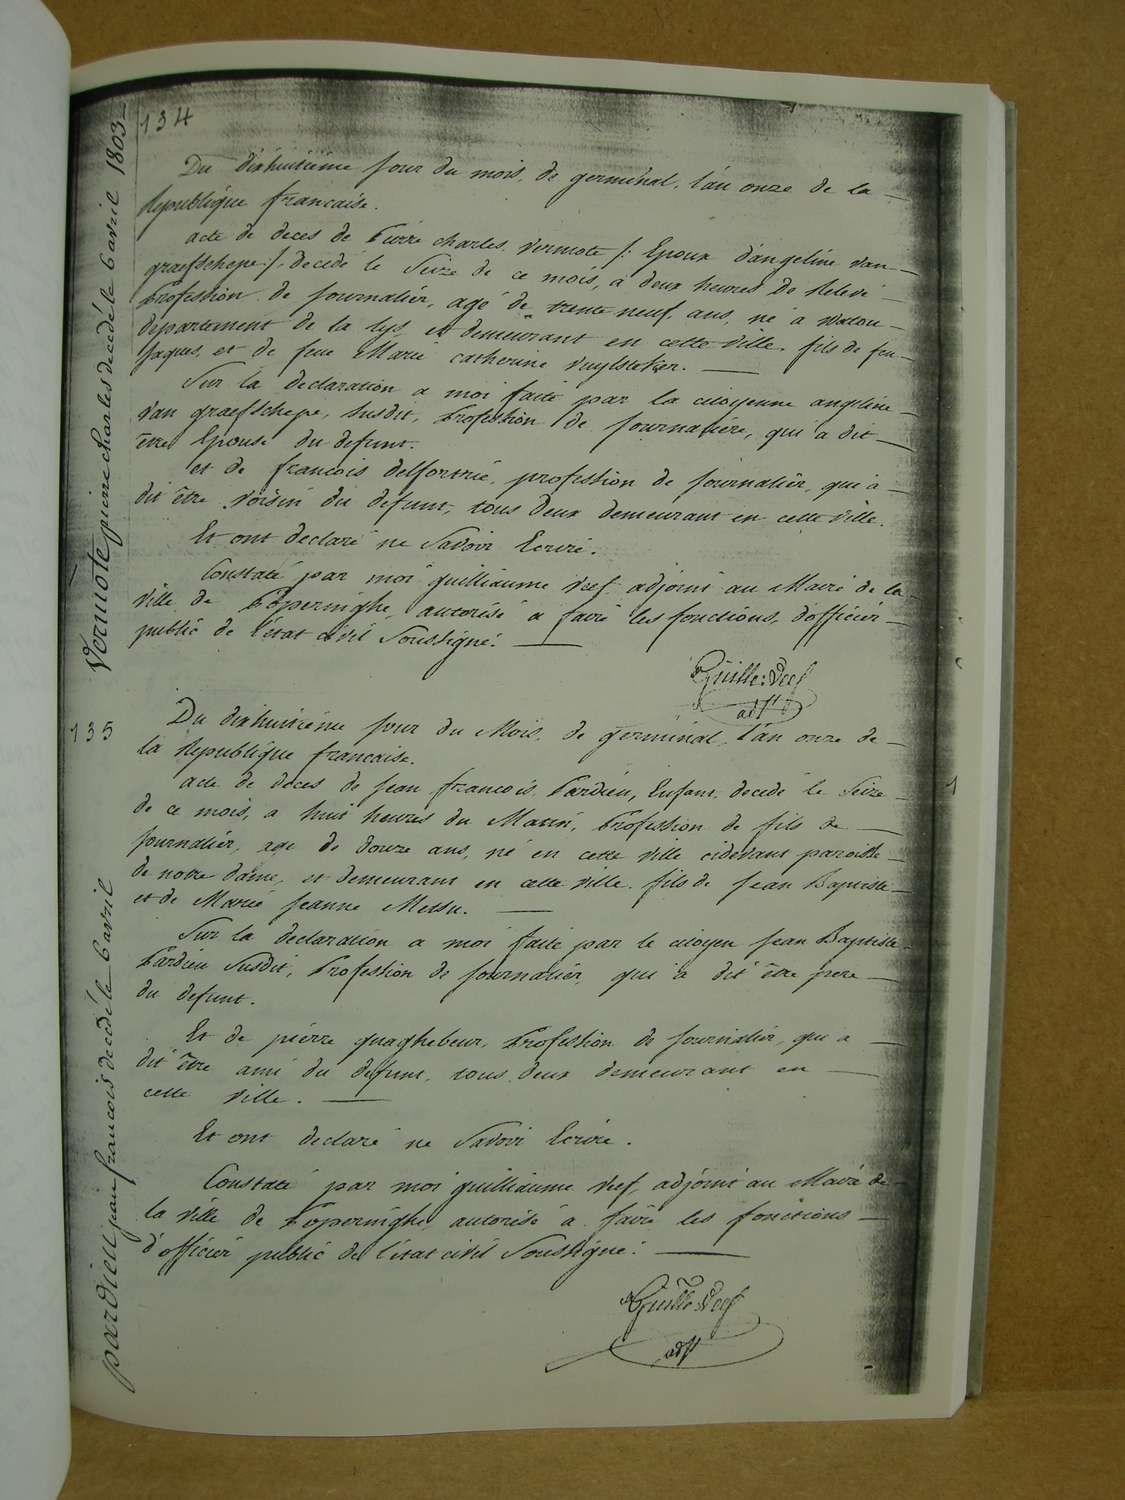 134
Vermote pierre charles decedé le 6 avril 1803
Du dixhuitieme jour du mois, de germinal, l'an onze de la
Republique francaise.
acte de deces de Pierre charles vermote /: Epoux d'angeline van
graefschepe :/ decedé le Seize de ce mois, a deux heures de Relevé
Profession de journalier, agé de trente neuf ans, né à watou
departement de la lys et demeurant en cette ville. fils de feu
Jaques, et de feue Marie catherine vuylsteker.
Sur la declaration a moi faite par la citoyenne angeline
van graefschepe, susdit, Profession de journaliere, qui a dit
être Epouse du defunt.
et de francois delfortrie, profession de journalier, qui a
dit être voisin du defunt, tous deux demeurant en cette ville.
Et ont declaré ne Savoir Ecrire.
Constaté par moi guilliaume veef adjoint au Maire de la
ville de Poperinghe, autorisé a faire les fonctions d'officier
public de l'état civil Soussigné.
Guille: Veef
adjt
135
pardieu jean francois decedé le 6 avril
Du dixhuitieme jour du Mois, de germinal, l'an onze de
la Republique francaise.
acte de deces de jean francois Pardieu, Enfant, decedé le Seize
de ce mois, a huit heures du Matin, Profession de fils de
journalier, agé de douze ans, né en cette ville cidevant paroisse
de notre dame, et demeurant en cette ville. fils de jean Baptiste
et de Marie jeanne Messu.
Sur la declaration a moi faite par le citoyen jean Baptiste
Pardieu Susdit, Profession de journalier, qui a dit être pere
du defunt.
Et de pierre quaghebeur, Profession de journalier, qui a
dit être ami du defunt, tous deux demeurant en
cette ville.
Et ont declaré ne Savoir Ecrire.
Constaté par moi guilliaume veef, adjoint au Maire de
la ville de Poperinghe, autorisé a faire les fonctions
d'officier public de l'état civil Soussigné.
Guille: Veef
adjt